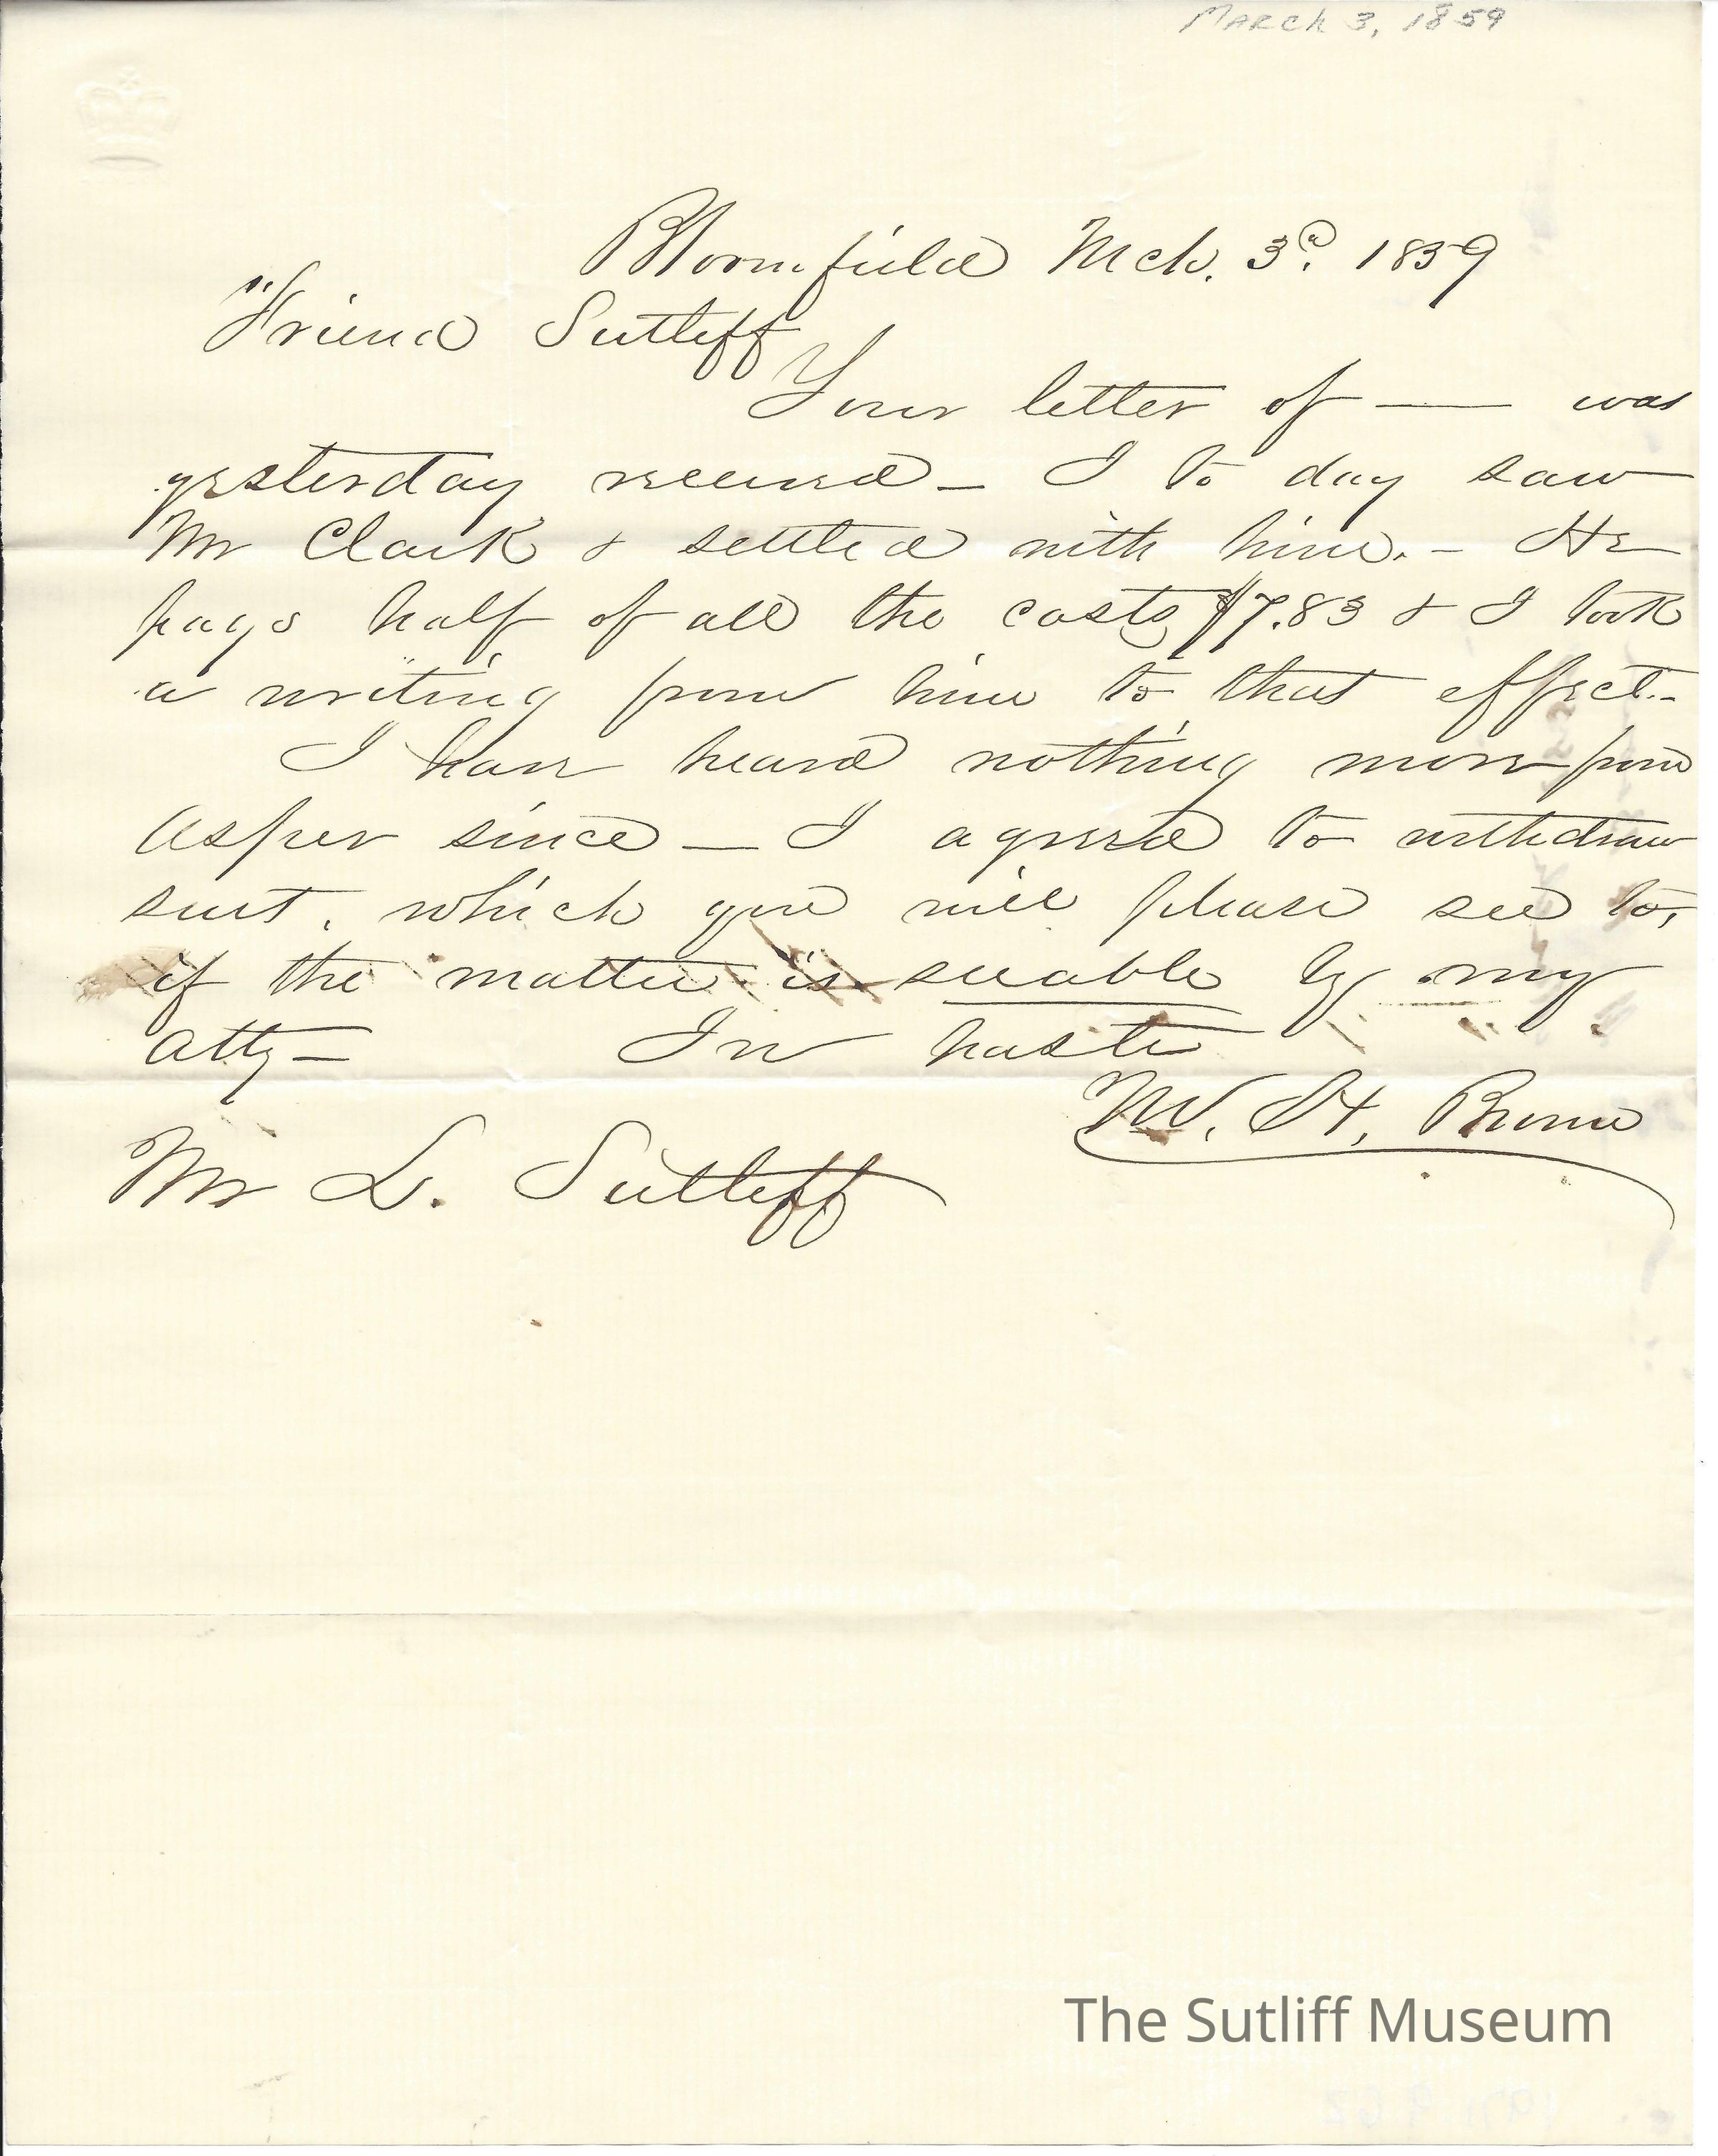 March 3, 1859
Bloomfield Mch. 3d. 1859
Friend Sutliff
Your letter of — was
yesterday received – I to day saw
Mr Clark & settled with him. – He
pays half of all the costs $7.83 & I took
a writing from him to that effect. –
I have heard nothing more from
Asper since – I agreed to withdraw
suit, which you will please see to,
if the matter is suable by my
atty – In haste
W. H. Brown
Mr L. Sutliff
The Sutliff Museum